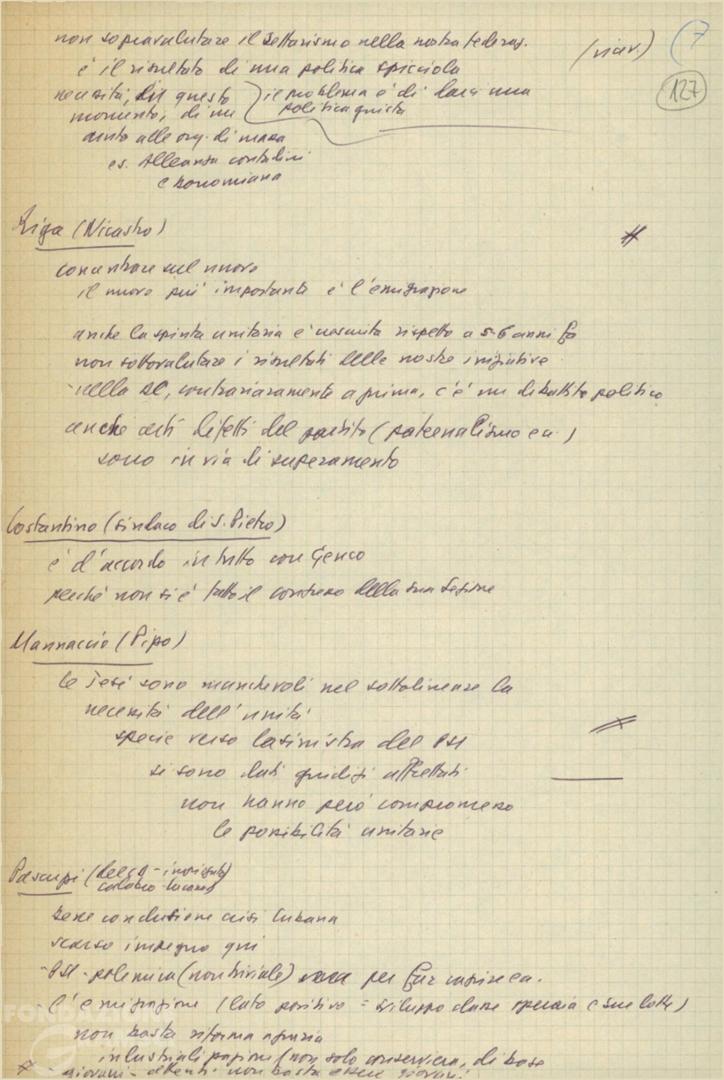 non sopravalutare il settarismo nella nostra federaz.
(Vicev)
7
127
è il risultato di una politica spicciola
necessità, in questo
momento, di un
il problema è di farci una
politica giusta
aiuto alle org. di massa
es. Alleanza contadini
e bonomiana
Riga (Nicastro)
concentrare sul nuovo
il nuovo più importante è l'emigrazione
anche la spinta unitaria è cresciuta rispetto a 5-6 anni fa
non sottovalutare i risultati delle nostre iniziative
- nella DC, contrariamente a prima, c'è un dibattito politico
anche certi difetti del partito (paternalismo ecc.)
sono in via di superamento
Costantino (sindaco di S. Pietro)
è d'accordo in tutto con Genco
perché non si è fatto il congresso della sua sezione
Mannaccio (Pipo)
le Tesi sono manchevoli nel sottolineare la
necessità dell'unità
specie verso la sinistra del PSI
si sono dati giudizi affrettati
non hanno però compromesso
le possibilità unitarie
Pascupi
calabro-lucane)
bene conclusione crisi Cubana
scarso impegno qui
- PSI - polemica (non triviale) per far capire ecc.
- L'emigrazione (lato positivo = sviluppo classe operaia e sue lotte)
non basta riforma agraria
industrializzazione (non solo conserviera, di base
- giovani - attenti non basta essere giovani